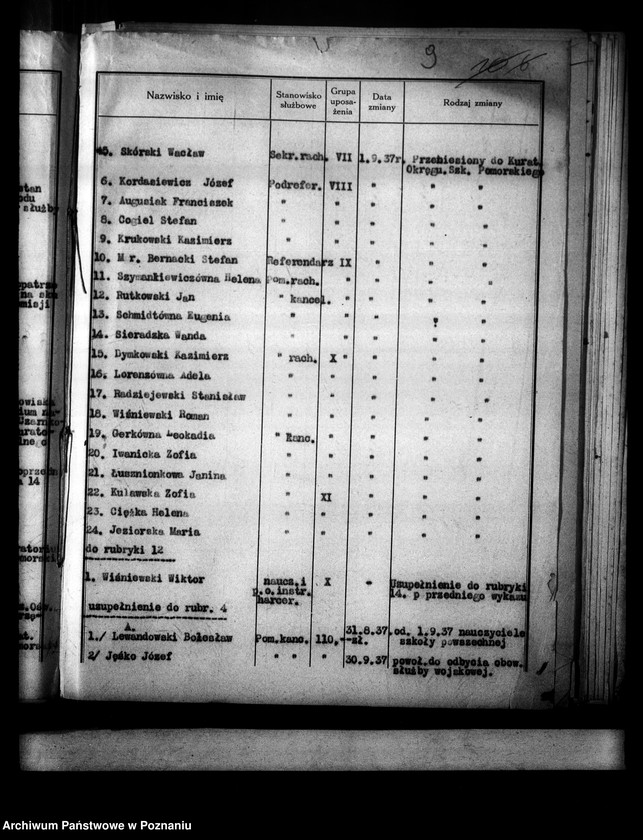 9
Nazwisko i imię Stanowisko służbowe Grupa uposażenia Data zmiany Rodzaj zmiany
5. Skórski Wacław Sekr.rach. VII 1.9.37r. Przeniesiony do Kurat.
Okręgu.Szk. Pomorskiego
6. Kordasiewicz Józef Podrefer. VIII " " "
7. Augusiak Franciszek " " " " "
8. Cogiel Stefan " " " " "
9. Krukowski Kazimierz " " " " "
10. M r. Bernacki Stefan Referendarz IX " " "
11. Szymankiewiczówna Helena Pom.rach. " " " "
12. Rutkowski Jan " kancel. " " " "
13. Schmidtówna Eugenia " " " " "
14. Sieradzka Wanda " " " " "
15. Dymkowski Kazimierz " rach. X " " " "
16. Lorenzówna Adela " " " " "
17. Radziejewski Stanisław " " " " "
18. Wiśniewski Roman " " " " "
19. Gerkówna Leokadia " Kanc. " " " "
20. Iwanicka Zofia " " " " "
21. Łusznionkowa Janina " " " " "
22. Kulawska Zofia " XI " " "
23. Ciężka Helena " " " " "
24. Jeziorska Maria " " " " "
do rubryki 12
1. Wiśniewski Wiktor naucz.i X " Uzupełnienie do rubryki
p.o.instr. 14. p przedniego wykazu
harcer.
uzupełnienie do rubr. 4
A.
1./ Lewandowski Bolesław Pom.kanc. 110,--zł. 31.8.37. od. 1.9.37 nauczyciele
szkoły powszechnej
2/ Jęśko Józef " " " 30.9.37 powoł.do odbycia obow.
służby wojskowej.
Archiwum Państwowe w Poznaniu